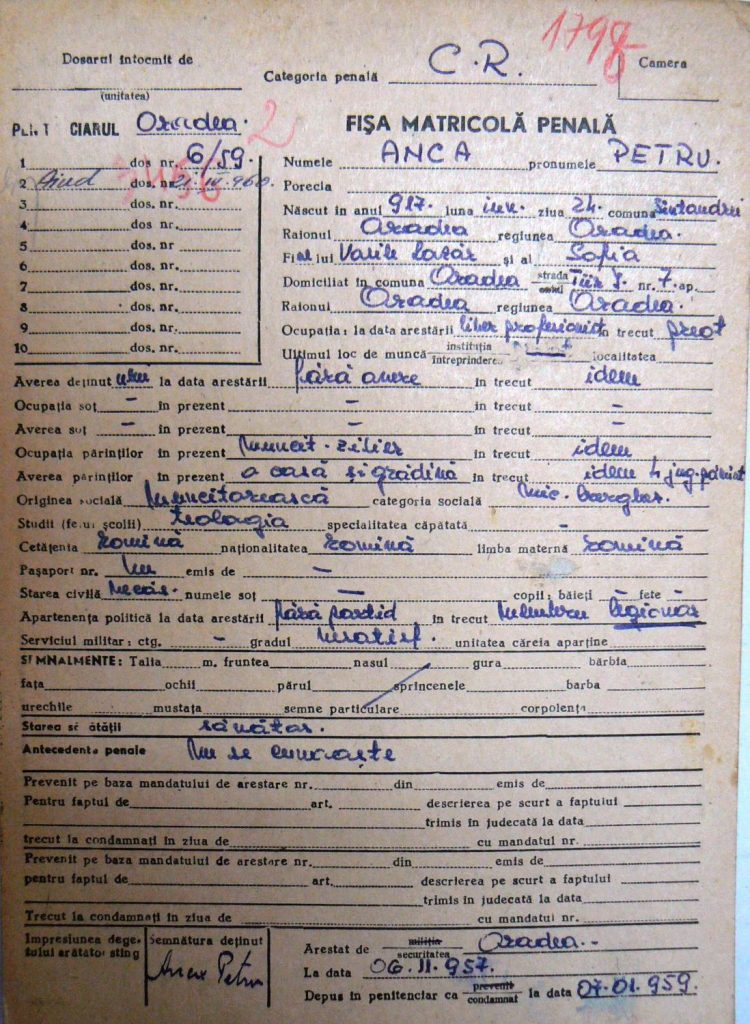 1798
Dosarul întocmit de
(unitatea)
Categoria penală C.R.
Camera
CIARUL Oradea. 2
FIŞA MATRICOLĂ PENALĂ
1 dos nr. 6/59.
2 Aiud dos nr.
3 dos. nr.
4 dos. nr.
5 dos. nr.
6 dos. nr.
7 dos. nr.
8 dos. nr.
9 dos. nr.
10 dos. nr.
Numele ANCA pronumele PETRU.
Porecla
Născut în anul 917. luna iun. ziua 24. comuna Sîntandrei
Raionul Oradea regiunea Oradea.
Fiul lui Vasile Lazăr şi al Sofia
Domiciliat în comuna Oradea strada nr. 7. ap.
Raionul Oradea regiunea Oradea.
Ocupaţia: la data arestării liber profesionist în trecut preot
Ultimul loc de muncă instituţia întreprinderea localitatea
Averea deţinut la data arestării fără avere în trecut idem
Ocupaţia soţ - în prezent - în trecut -
Averea soţ - în prezent - în trecut -
Ocupaţia părinţilor în prezent Muncit. zilier în trecut idem
Averea părinţilor în prezent o casă şi grădină în trecut idem 4 jug. pămînt
Originea socială Muncitorească categoria socială Mic. burghez.
Studii (felul şcolii) teologia specialitatea căpătată -
Cetăţenia Romînă naţionalitatea Romînă limba maternă Romînă
Paşaport nr. Nu emis de -
Starea civilă Necăs. numele soţ - copii: băieţi - fete -
Apartenenţa politică la data arestării fără partid în trecut Membru legionar
Serviciul militar: ctg. - gradul unitatea căreia aparţine
SEMNALMENTE: Talia m. fruntea nasul gura bărbia
faţa ochii părul sprîncenele barba
urechile mustaţa semne particulare corpolenţa
Starea sănătăţii sănătos.
Antecedente penale Nu se cunoaşte
Prevenit pe baza mandatului de arestare nr. din emis de
Pentru faptul de art. descrierea pe scurt a faptului
trimis în judecată la data
trecut la condamnaţi în ziua de cu mandatul nr.
Prevenit pe baza mandatului de arestare nr. din emis de
pentru faptul de art. descrierea pe scurt a faptului
trimis în judecată la data
Trecut la condamnaţi în ziua de cu mandatul nr.
Impresiunea degetului arătător stîng
Semnătura deţinut
Anca Petru
Arestat de miliţia securitatea Oradea.-
La data 06.11.957.
Depus în penitenciar ca prevenit condamnat la data 07.01.959